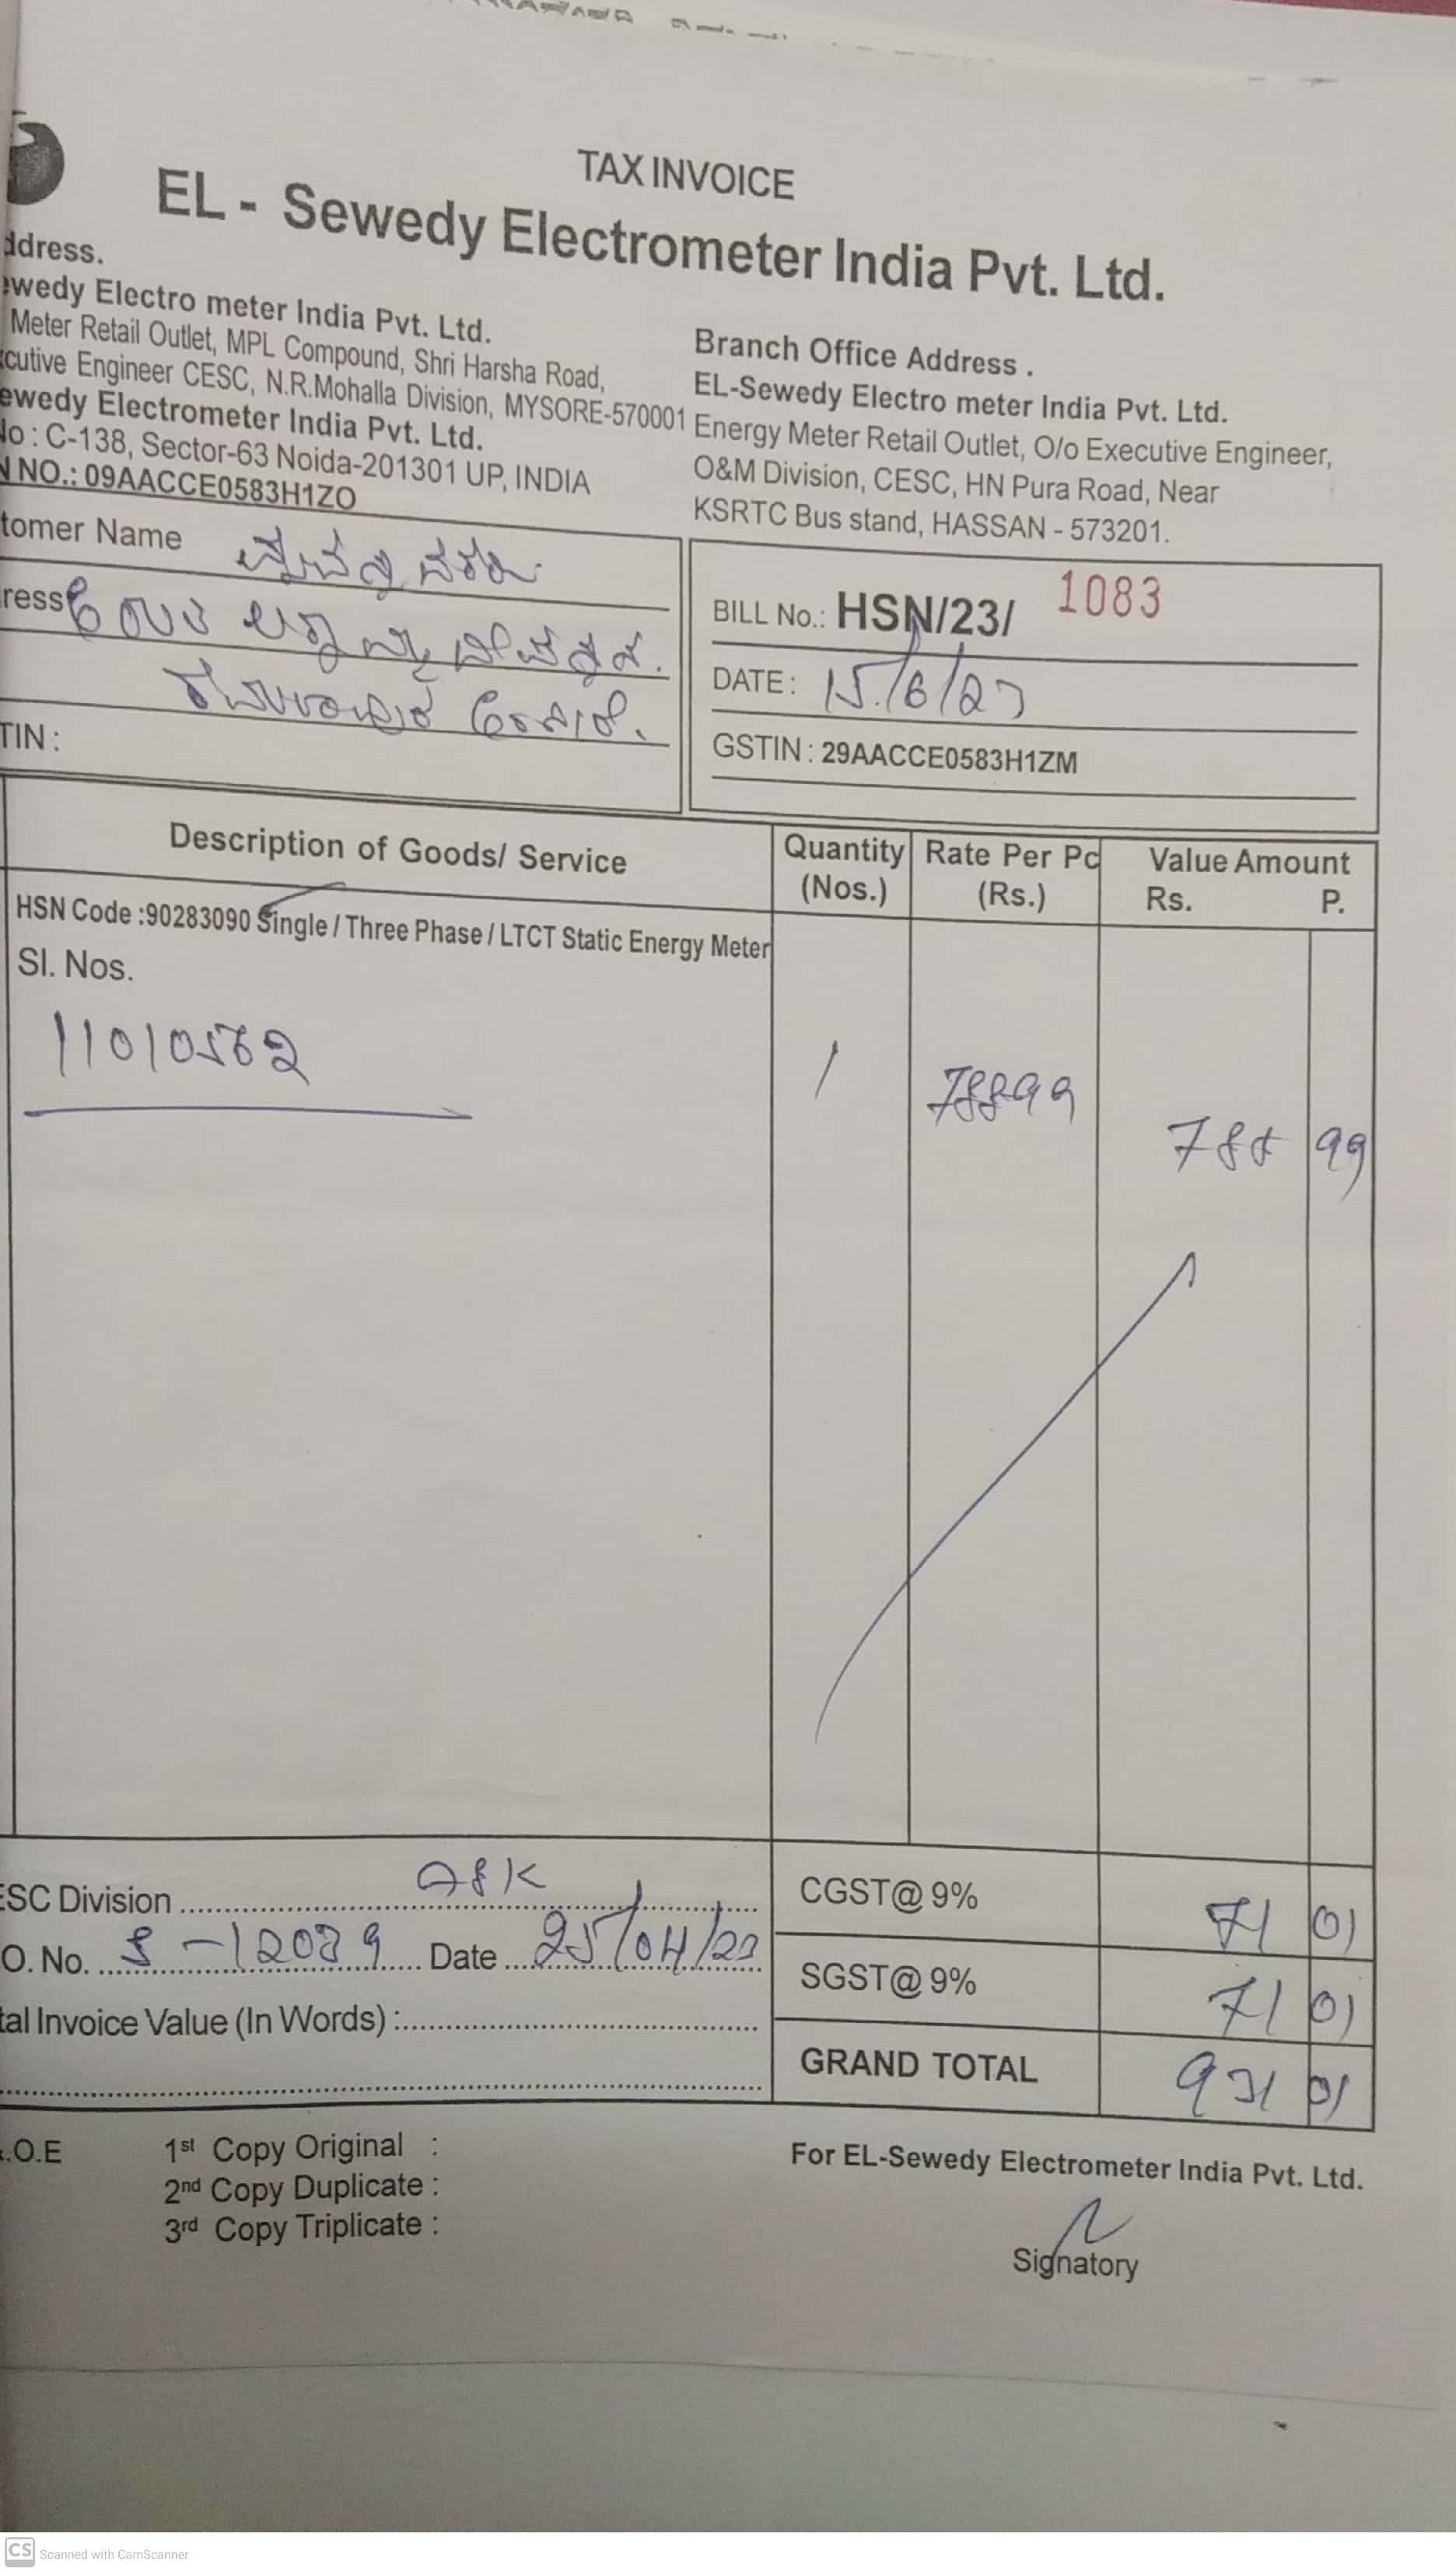 TAX INVOICE
EL - Sewedy Electrometer India Pvt. Ltd.
ddress.
ewedy Electro meter India Pvt. Ltd.
Meter Retail Outlet, MPL Compound, Shri Harsha Road,
cutive Engineer CESC, N.R.Mohalla Division, MYSORE-570001
ewedy Electrometer India Pvt. Ltd.
No : C-138, Sector-63 Noida-201301 UP, INDIA
N NO.: 09AACCE0583H1ZO
Branch Office Address .
EL-Sewedy Electro meter India Pvt. Ltd.
Energy Meter Retail Outlet, O/o Executive Engineer,
O&M Division, CESC, HN Pura Road, Near
KSRTC Bus stand, HASSAN - 573201.
tomer Name
ress
TIN :
BILL No.: HSN/23/ 1083
DATE : 15/6/23
GSTIN : 29AACCE0583H1ZM
Description of Goods/ Service
Quantity (Nos.)
Rate Per Pc (Rs.)
Value Amount
Rs. P.
HSN Code :90283090 Single / Three Phase / LTCT Static Energy Meter
Sl. Nos.
11010562
1 788.99 788 99
ESC Division ASK
O. No. S-12039 Date 25/04/23
tal Invoice Value (In Words) :
CGST@ 9% 71 01
SGST@ 9% 71 01
GRAND TOTAL 931 01
.O.E
1st Copy Original :
2nd Copy Duplicate :
3rd Copy Triplicate :
For EL-Sewedy Electrometer India Pvt. Ltd.
Signatory
CS Scanned with CamScanner